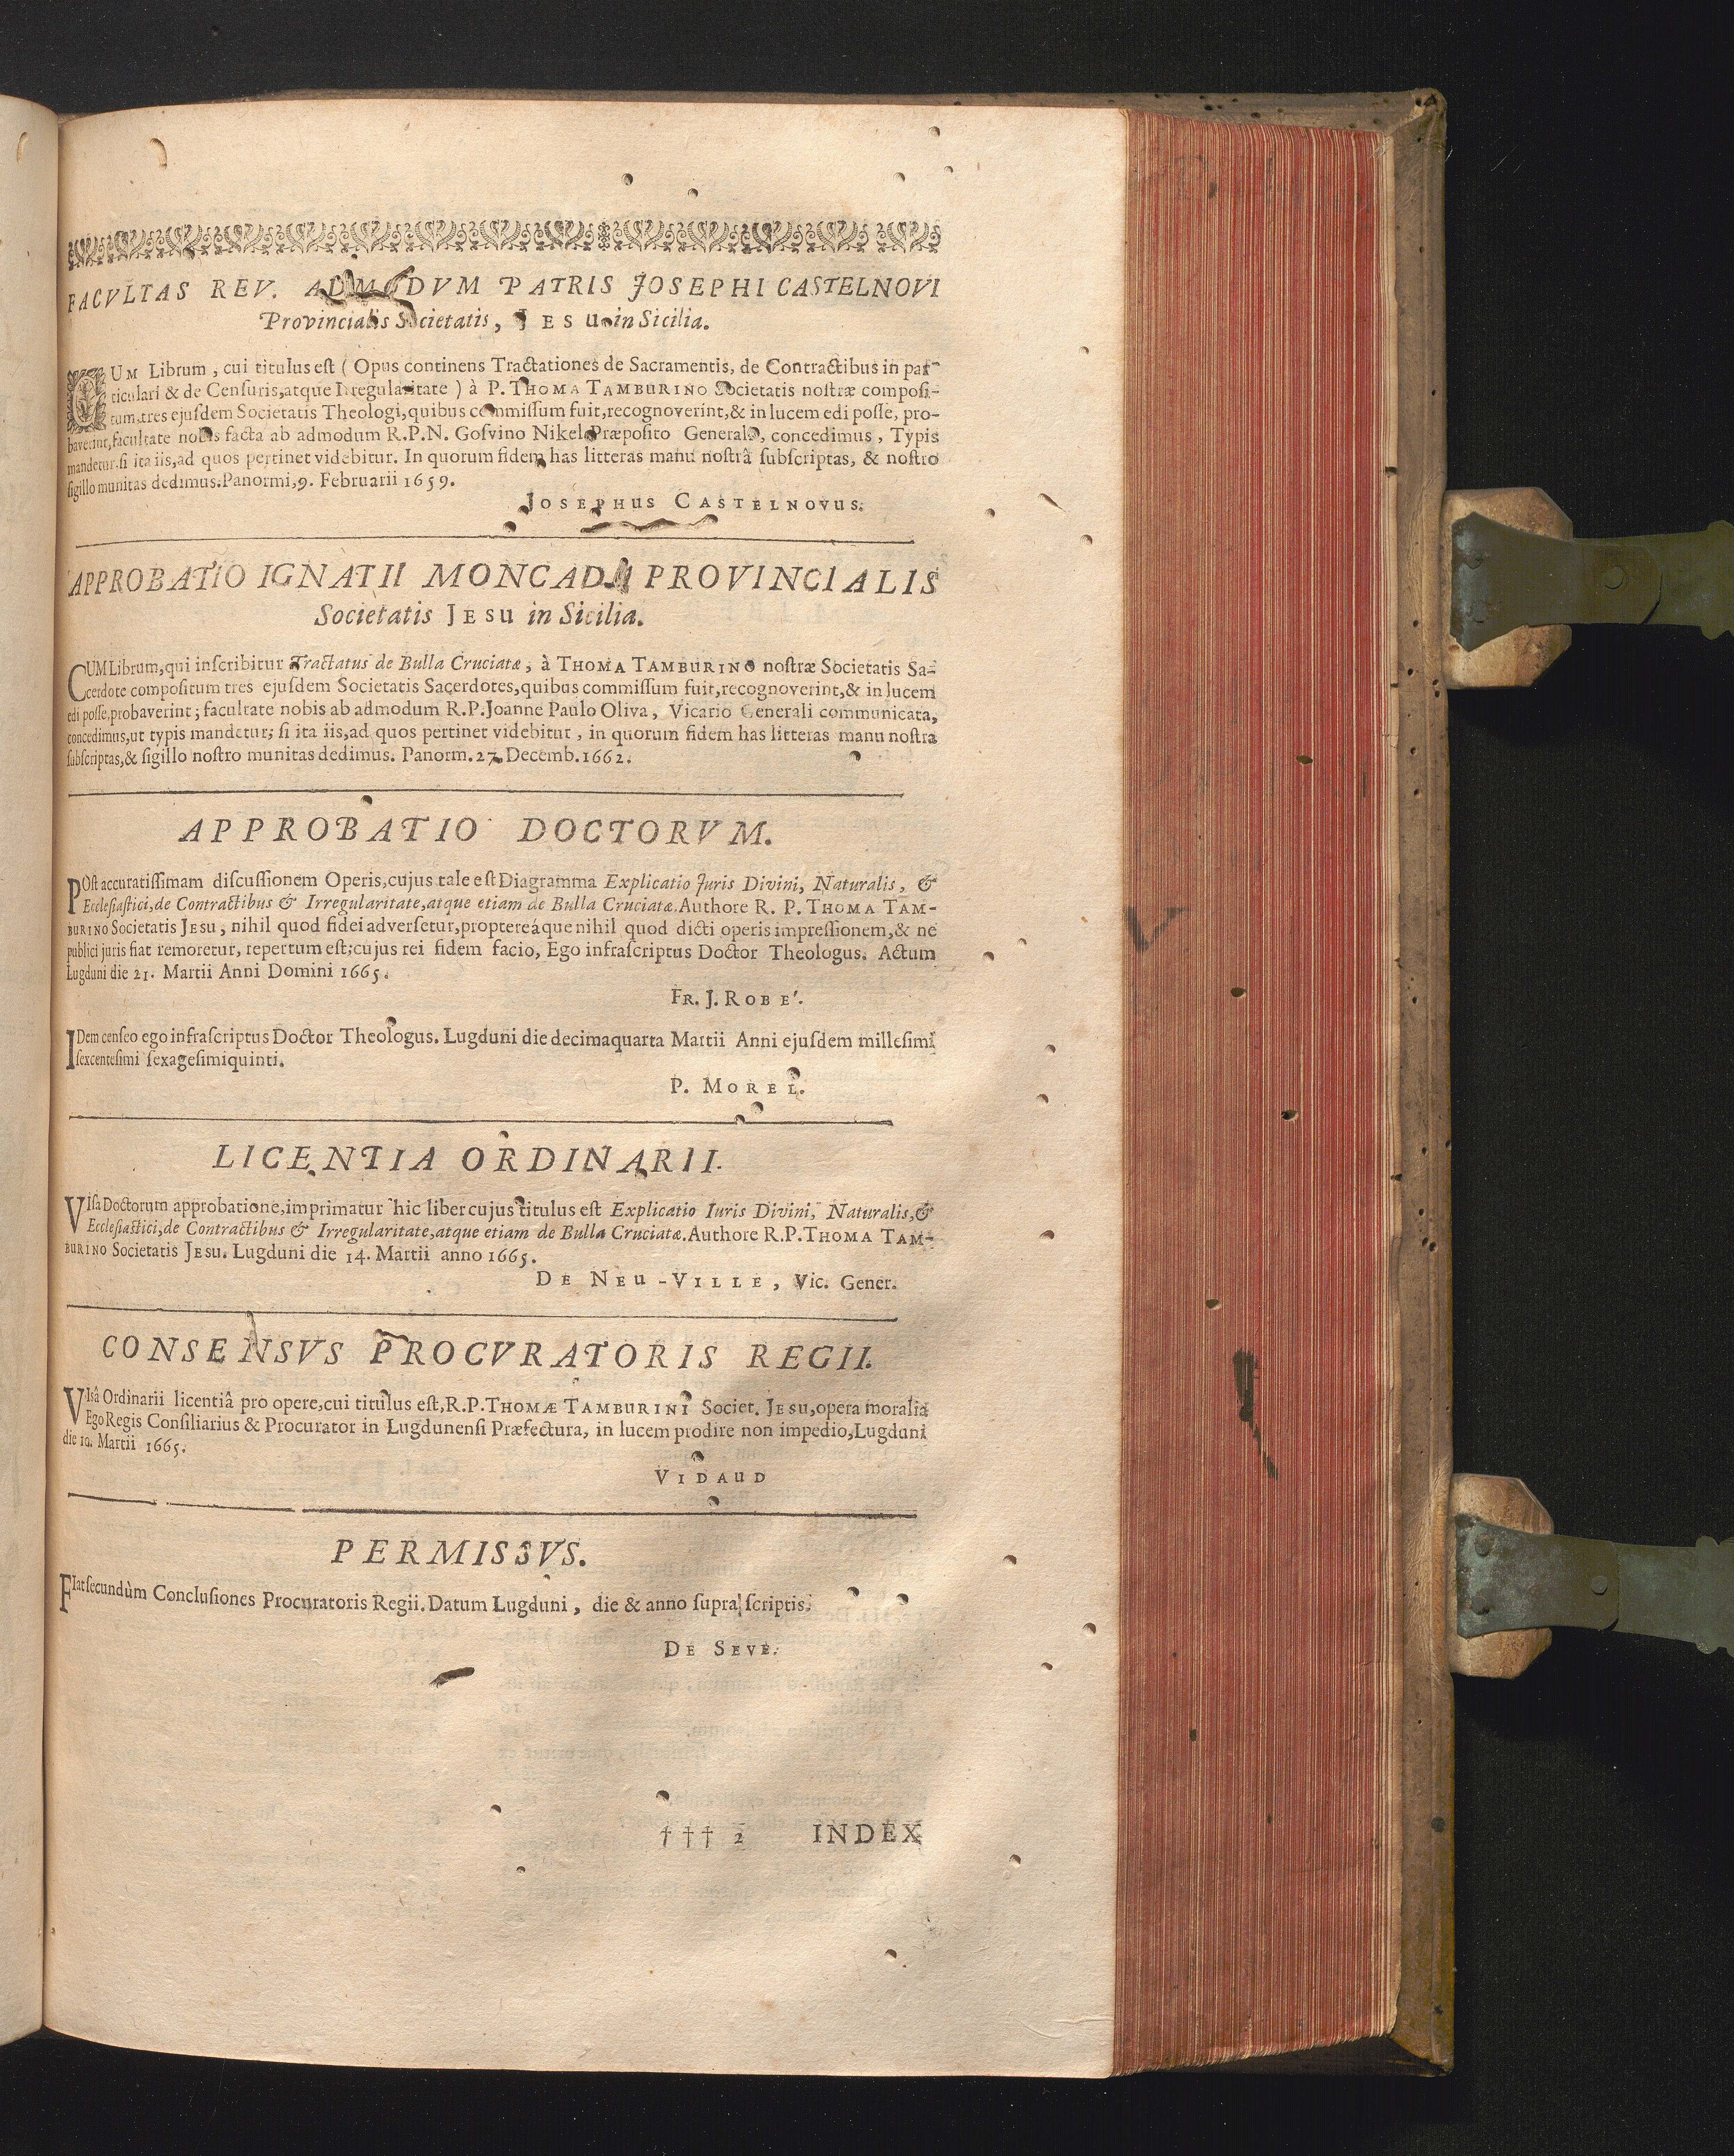 FACVLTAS REV. ADMODVM PATRIS JOSEPHI CASTELNOVI
Provincialis Societatis, JESU in Sicilia.
CUM Librum, cui titulus est (Opus continens Tractationes de Sacramentis, de Contractibus in par-
ticulari & de Censuris, atque Irregularitate) à P. THOMA TAMBURINO Societatis nostræ composi-
tum tres ejusdem Societatis Theologi, quibus commissum fuit, recognoverint, & in lucem edi posse, pro-
baverint, facultate nobis facta ab admodum R.P.N. Gosvino Nikel Præposito Generali, concedimus, Typis
mandetur, si ita iis, ad quos pertinet videbitur. In quorum fidem has litteras manu nostrâ subscriptas, & nostro
sigillo munitas dedimus. Panormi, 9. Februarii 1659.
JOSEPHUS CASTELNOVUS.
APPROBATIO IGNATII MONCADA PROVINCIALIS
Societatis JESU in Sicilia.
CUM Librum, qui inscribitur Tractatus de Bulla Cruciatæ, à THOMA TAMBURINO nostræ Societatis Sa-
cerdote compositum tres ejusdem Societatis Sacerdotes, quibus commissum fuit, recognoverint, & in lucem
edi posse, probaverint; facultate nobis ab admodum R.P. Joanne Paulo Oliva, Vicario Generali communicata,
concedimus, ut typis mandetur; si ita iis, ad quos pertinet videbitur, in quorum fidem has litteras manu nostra
subscriptas, & sigillo nostro munitas dedimus. Panorm. 27. Decemb. 1662.
APPROBATIO DOCTORVM.
POst accuratissimam discussionem Operis, cujus tale est Diagramma Explicatio Juris Divini, Naturalis, &
Ecclesiastici, de Contractibus & Irregularitate, atque etiam de Bulla Cruciatæ. Authore R. P. THOMA TAM-
BURINO Societatis JESU, nihil quod fidei adversetur, proptereáque nihil quod dicti operis impressionem, & ne
publici juris fiat remoretur, repertum est; cujus rei fidem facio, Ego infrascriptus Doctor Theologus. Actum
Lugduni die 21. Martii Anni Domini 1665.
FR. J. ROBE'.
IDem censeo ego infrascriptus Doctor Theologus. Lugduni die decimaquarta Martii Anni ejusdem millesimi
sexcentesimi sexagesimiquinti.
P. MOREL.
LICENTIA ORDINARII.
VIsa Doctorum approbatione, imprimatur hic liber cujus titulus est Explicatio Iuris Divini, Naturalis, &
Ecclesiastici, de Contractibus & Irregularitate, atque etiam de Bulla Cruciatæ. Authore R.P. THOMA TAM-
BURINO Societatis JESU. Lugduni die 14. Martii anno 1665.
DE NEU-VILLE, Vic. Gener.
CONSENSVS PROCVRATORIS REGII.
VIsâ Ordinarii licentiâ pro opere, cui titulus est, R.P. THOMÆ TAMBURINI Societ. JESU, opera moralia
Ego Regis Consiliarius & Procurator in Lugdunensi Præfectura, in lucem prodire non impedio, Lugduni
die 10. Martii 1665.
VIDAUD
PERMISSVS.
FIat secundùm Conclusiones Procuratoris Regii. Datum Lugduni, die & anno supra scriptis.
DE SEVE.
††† 2 INDEX